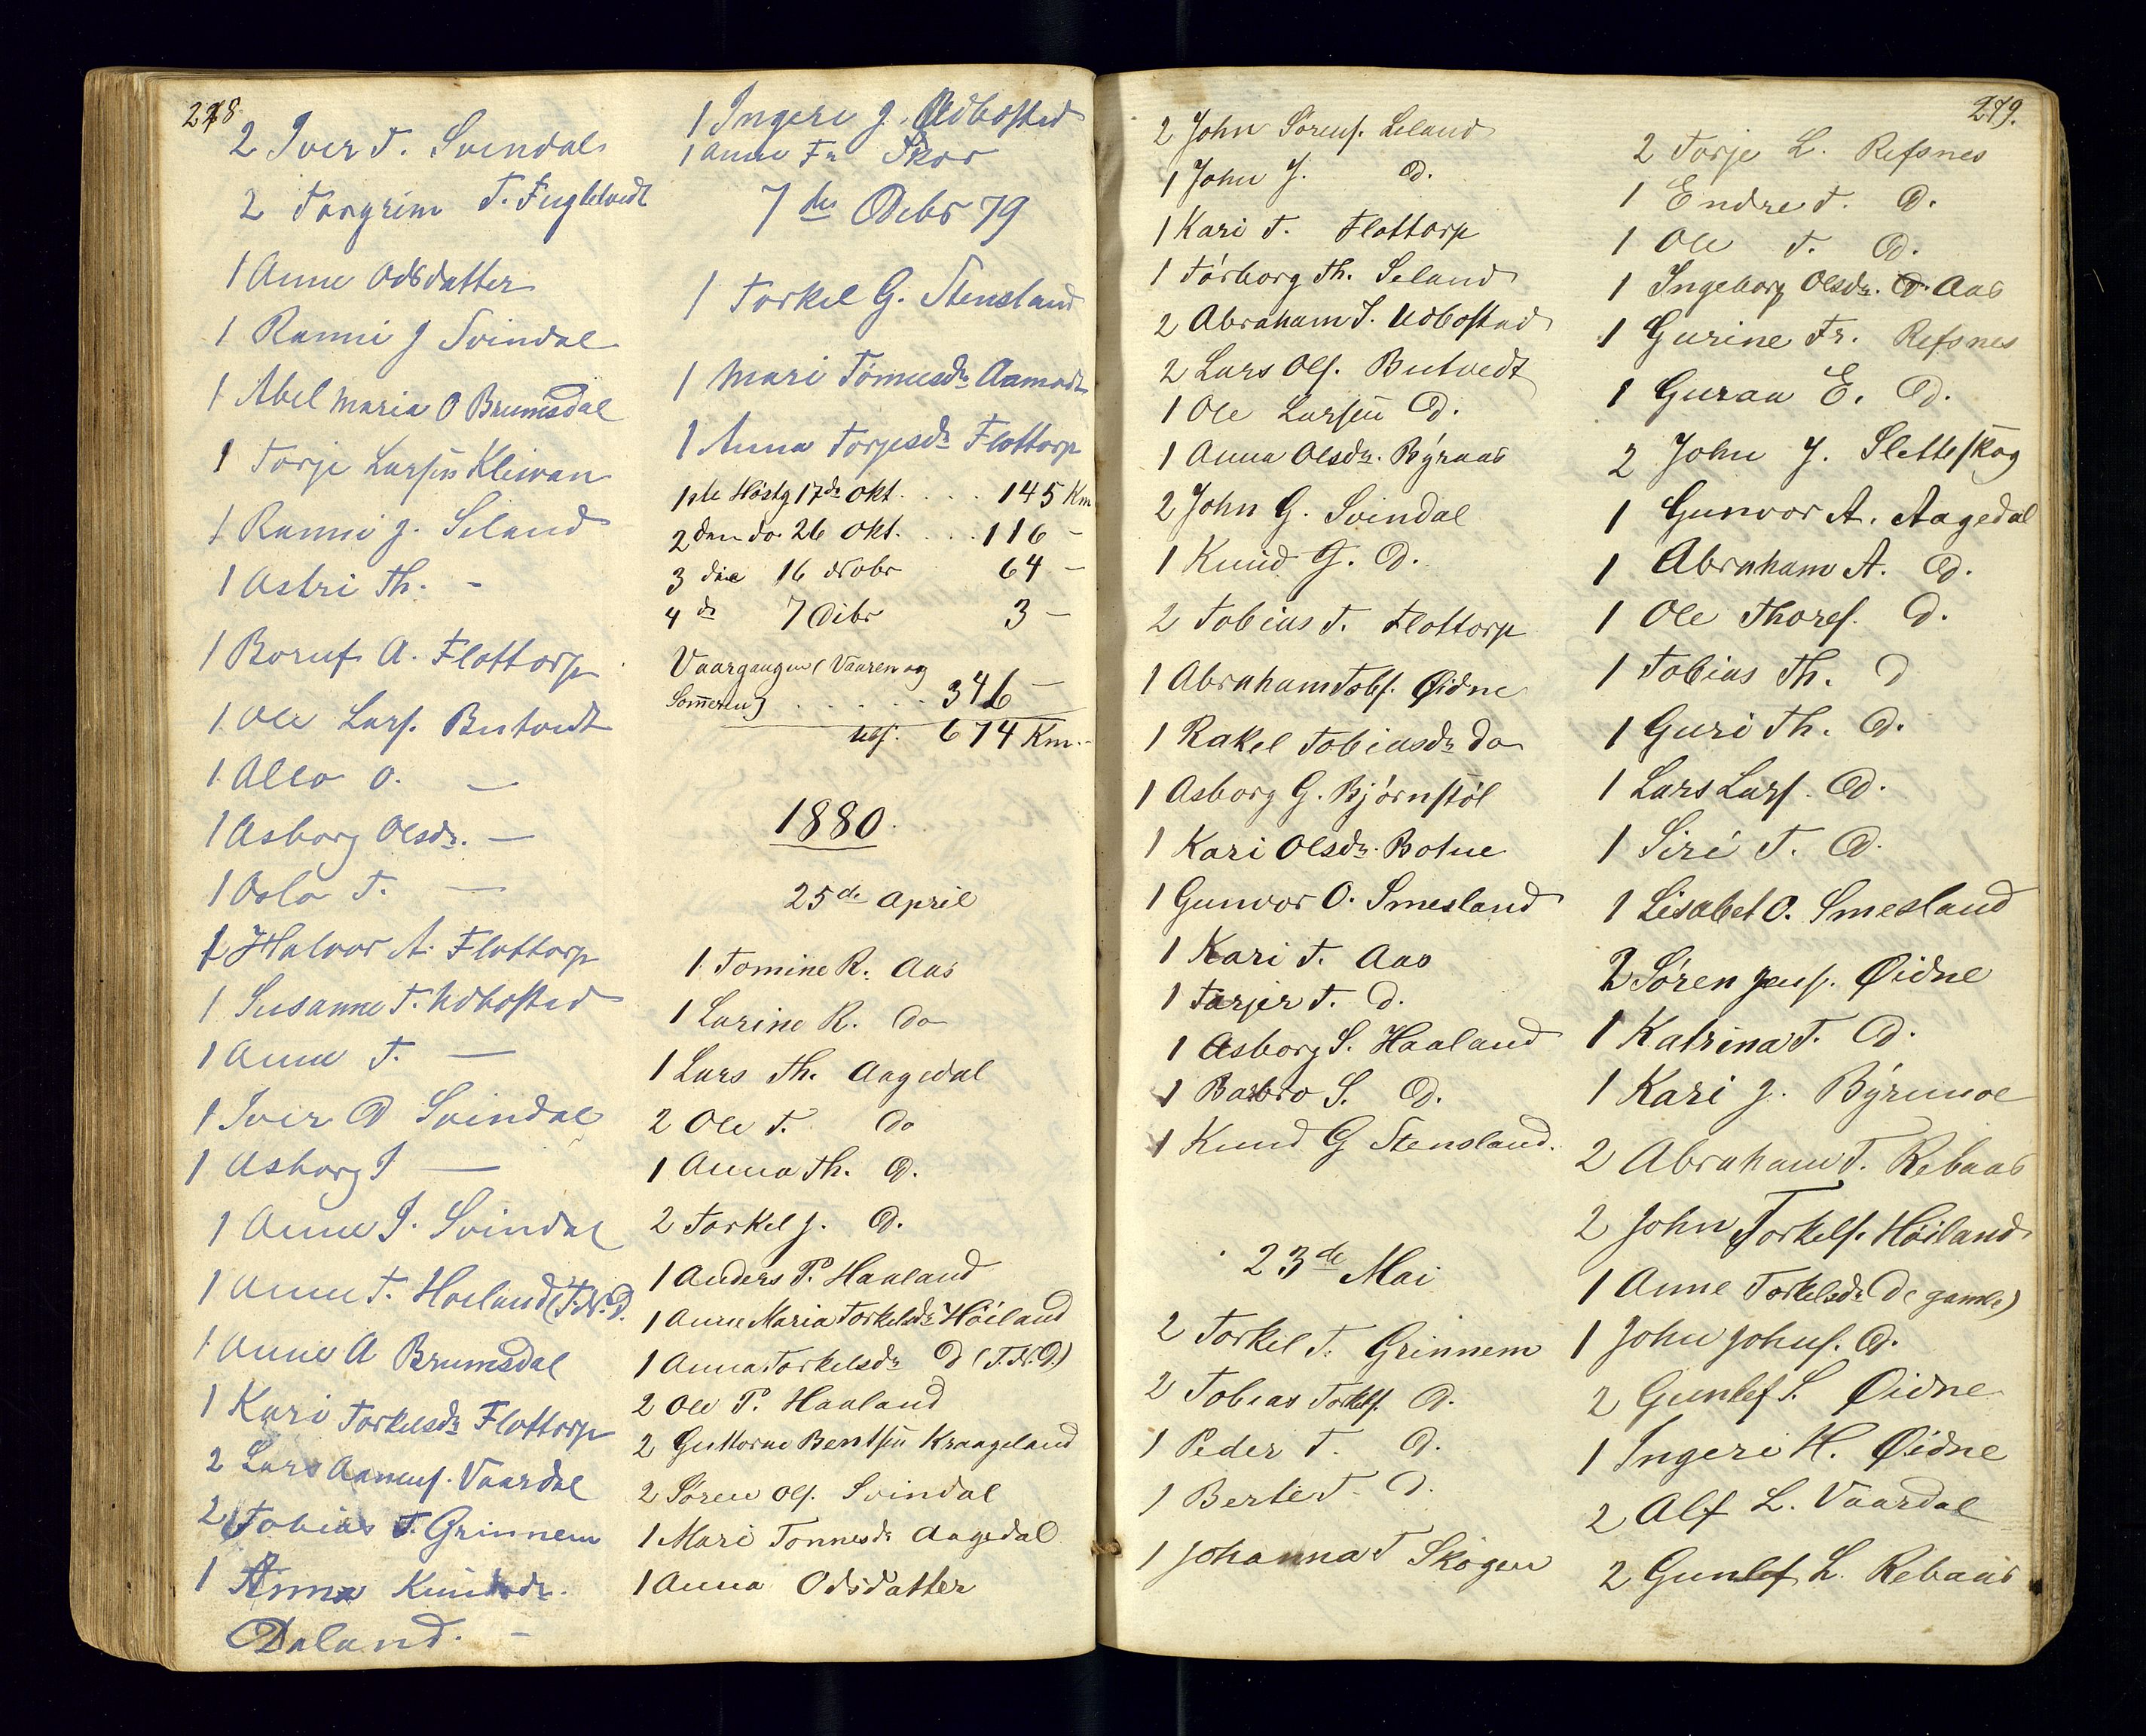 278.
2 Iver T. Svendal
2 Torgrim T. Fugletvedt
1 Anne Odsdatter
1 Ranni J Svindal
1 Abel Maria O Brumsdal
1 Torje Larsen Kleivan
1 Ranni J. Seland
1 Astri Th. -
1 Boruf A. Flottorp
1 Ole Larf. Butvedt
1 Allo O. —
1 Asborg Olsdr. —
1 Oslo T. —
1 Halvor A. Flottorp
1 Susanne T. Udbosted
1 Anne T. —
1 Iver D Svindal
1 Asborg I —
1 Anne I. Svindal
1 Anne T. Horland (T.N.D.
1 Anne A Brumsdal
1 Kari Torkelsdr Flottorp
2 Lars Aanenf. Vaardal
2 Tobias T. Grinnem
1 Anna
Daland. -
1 Ingeri J. Udbosted
1 Anne Fr Skor
7de Decbr 79
1 Torkel G. Stensland
1 Mari Tønnesdr Aamodt
1 Anna Torjesdr Flottorp
1ste Høstg 17de Okt. . . . 145 Km
2den do 26 Okt. . . . 116 -
3die 16 Nobr 64 -
4de 7 Dcbr 3 -
Vaargangen (Vaaren og
Sommeren) . . . . . . 346 -
674 Km.
1880.
25de April
1 Tomine R. Aas
1 Larine R. Do
1 Lars Th. Aagedal
2 Ole T. Do
1 Anna Th. D.
2 Torkel J. D.
1 Anders P. Haaland
1 Anne Maria Torkelsdr Høiland
1 Anna Torkelsdr D (T.N.D.)
2 Ole P. Haaland
2 Guttorm Bentsen Kraageland
2 Søren Olf. Svindal
1 Mari Tonnesdr Aagedal
1 Anna Odsdatter
279.
2 John Sørenf. Leland
1 John J. D.
1 Kari T. Flottorp
1 Tørborg Th. Seland
2 Abraham T. Udbostad
2 Lars Olf. Butvedt
1 Ole Larsen D.
1 Anna Olsdr. Byraas
2 John G. Svindal
1 Knud G. D.
2 Tobias T. Flottorp
1 Abraham Tobf. Øidne
1 Rakel Tobiasdr Do
1 Asborg G. Bjørnstøl
1 Kari Olsdr. Botne
1 Gunvor O. Smesland
1 Kari T. Aas
1 Tarjer T. D.
1 Asborg S. Haaland
1 Barbro S. D.
1 Knud G Stensland.
23de Mai
2 Torkel T. Grinnem
2 Tobias Torkelf. D.
1 Peder T. D.
1 Berte T. D.
1 Johanna T Skogen
2 Torje L. Refsnes
1 Endre T. D.
1 Ole T. D.
1 Ingeborg Olsdr. D. Aas
1 Gurine Fr. Refsnes
1 Guraa E. D.
2 John J. Sletteskog
1 Gunvor A. Aagedal
1 Abraham A. D.
1 Ole Thoref. D.
1 Tobias Th. D
1 Guri Th. D.
1 Lars Larf. D.
1 Siri T. D.
1 Lisabet O. Smesland
2 Søren Jenf. Øidne
1 Katrina T. D.
1 Kari J. Byrumoe
2 Abraham T. Rebaas
2 John Torkelf. Høiland
1 Anne Torkelsdr D (gamle)
1 John Johnf. D.
2 Gunlef S. Øidne
1 Ingeri H. Øidne
2 Alf L. Vaardal
2 Gunlef L. Rebaas